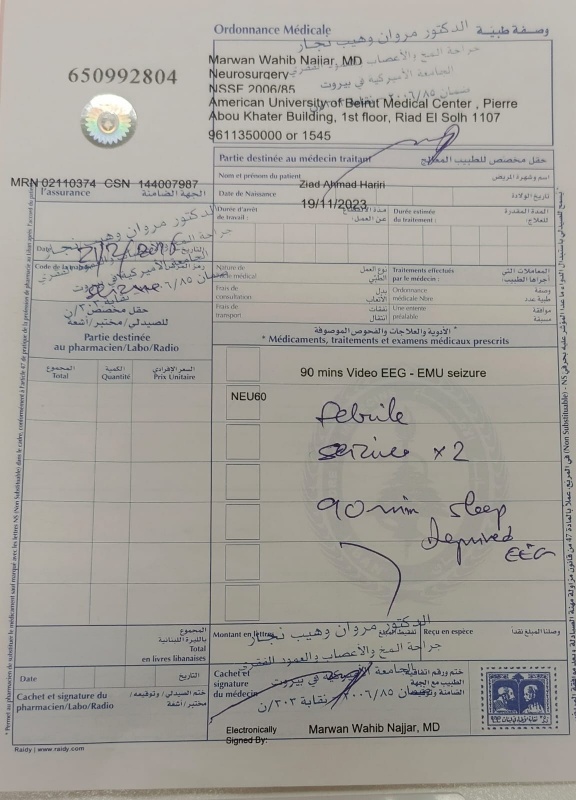 Ordonnance Médicale
وصفة طبية
الدكتور مروان وهيب نجار
650992804
Marwan Wahib Najjar, MD
جراحة المخ والأعصاب والعمود الفقري
Neurosurgery
الجامعة الأميركية في بيروت
NSSF 2006/85
American University of Beirut Medical Center , Pierre
Abou Khater Building, 1st floor, Riad El Solh 1107
9611350000 or 1545
Partie destinée au médecin traitant
حقل مخصص للطبيب المعالج
Nom et prénom du patient
اسم وشهرة المريض
MRN 02110374 CSN 144007987
Ziad Ahmad Hariri
l'assurance
الجهة الضامنة
Date de Naissance
تاريخ الولادة
19/11/2023
Durée d'arrêt
de travail :
مدة الانقطاع
عن العمل:
Durée estimée
du traitement :
المدة المقدرة
للعلاج:
الدكتور مروان وهيب نجار
جراحة المخ والأعصاب والعمود الفقري
Date
التاريخ
الجامعة الأميركية في بيروت
Nature de
médical
نوع العمل
الطبي
Traitements effectués
par le médecin :
المعاملات التي
أجراها الطبيب:
Frais de
consultation
بدل
الأتعاب
Ordonnance
médicale Nbre
وصفة
طبية عدد
Frais de
transport
نفقات
انتقال
Une entente
préalable
موافقة
مسبقة
حقل مخصص
للصيدلي/مختبر/أشعة
Partie destinée
au pharmacien/Labo/Radio
* الأدوية والعلاجات والفحوص الموصوفة
* Médicaments, traitements et examens médicaux prescrits
المجموع
Total
الكمية
Quantité
السعر الإفرادي
Prix Unitaire
90 mins Video EEG - EMU seizure
NEU60
Febrile
seizure x 2
90 min sleep
Deprived
EEG
المجموع
بالليرة اللبنانية
Total
en livres libanaises
Montant en lettres
Reçu en espèce
وصلنا المبلغ نقدا
الدكتور مروان وهيب نجار
جراحة المخ والأعصاب والعمود الفقري
الجامعة الأميركية في بيروت
Date
التاريخ
Cachet et
signature
du médecin
ختم ورقم اتفاقية
الطبيب مع الجهة
الضامنة وتوقيعه
Cachet et signature du
pharmacien/Labo/Radio
ختم الصيدلي/وتوقيعه/
مختبر/أشعة
Electronically
Signed By:
Marwan Wahib Najjar, MD
Raidy | www.raidy.com